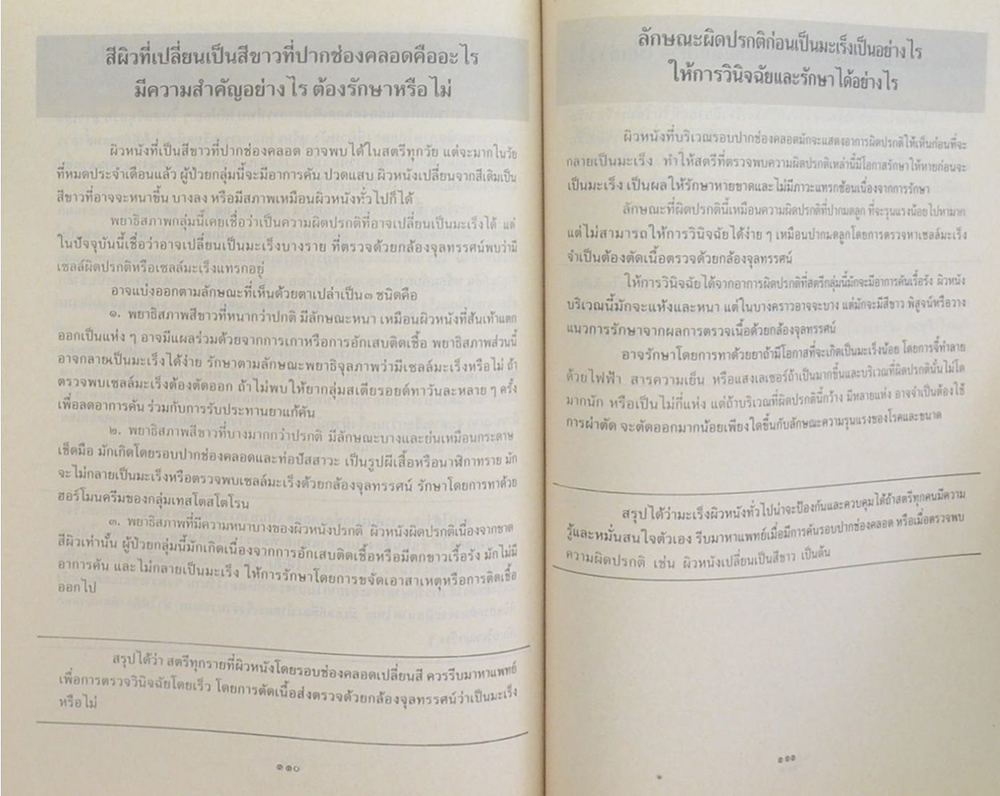 สีผิวที่เปลี่ยนเป็นสีขาวที่ปากช่องคลอดคืออะไร
มีความสำคัญอย่างไร ต้องรักษาหรือไม่
ผิวหนังที่เป็นสีขาวที่ปากช่องคลอด อาจพบได้ในสตรีทุกวัย แต่จะมากในวัย
ที่หมดประจำเดือนแล้ว ผู้ป่วยกลุ่มนี้จะมีอาการคัน ปวดแสบ ผิวหนังเปลี่ยนจากสีเดิมเป็น
สีขาวที่อาจจะหนาขึ้น บางลง หรือมีสภาพเหมือนผิวหนังทั่วไปก็ได้
พยาธิสภาพกลุ่มนี้เคยเชื่อว่าเป็นความผิดปรกติที่อาจเปลี่ยนเป็นมะเร็งได้ แต่
ในปัจจุบันนี้เชื่อว่าอาจเปลี่ยนเป็นมะเร็งบางราย ที่ตรวจด้วยกล้องจุลทรรศน์พบว่ามี
เซลล์ผิดปรกติหรือเซลล์มะเร็งแทรกอยู่
อาจแบ่งออกตามลักษณะที่เห็นด้วยตาเปล่าเป็น ๓ ชนิดคือ
๑. พยาธิสภาพสีขาวที่หนากว่าปกติ มีลักษณะหนา เหมือนผิวหนังที่ส้นเท้าแตก
ออกเป็นแห่ง ๆ อาจมีแผลร่วมด้วยจากการเกาหรือการอักเสบติดเชื้อ พยาธิสภาพส่วนนี้
อาจกลายเป็นมะเร็งได้ง่าย รักษาตามลักษณะพยาธิจุลภาพว่ามีเซลล์มะเร็งหรือไม่ ถ้า
ตรวจพบเซลล์มะเร็งต้องตัดออก ถ้าไม่พบให้ยากลุ่มสเตียรอยด์ทาวันละหลาย ๆ ครั้ง
เพื่อลดอาการคัน ร่วมกับการรับประทานยาแก้คัน
๒. พยาธิสภาพสีขาวที่บางมากกว่าปรกติ มีลักษณะบางและย่นเหมือนกระดาษ
เช็ดมือ มักเกิดโดยรอบปากช่องคลอดและท่อปัสสาวะ เป็นรูปผีเสื้อหรือนาฬิกาทราย มัก
จะไม่กลายเป็นมะเร็งหรือตรวจพบเซลล์มะเร็งด้วยกล้องจุลทรรศน์ รักษาโดยการทาด้วย
ฮอร์โมนครีมของกลุ่มเทสโตสโตโรน
๓. พยาธิสภาพที่มีความหนาบางของผิวหนังปรกติ ผิวหนังผิดปรกติเนื่องจากขาด
สีผิวเท่านั้น ผู้ป่วยกลุ่มนี้มักเกิดเนื่องจากการอักเสบติดเชื้อหรือมีตกขาวเรื้อรัง มักไม่มี
อาการคัน และไม่กลายเป็นมะเร็ง ให้การรักษาโดยการขจัดเอาสาเหตุหรือการติดเชื้อ
ออกไป
สรุปได้ว่า สตรีทุกรายที่ผิวหนังโดยรอบช่องคลอดเปลี่ยนสี ควรรีบมาหาแพทย์
เพื่อการตรวจวินิจฉัยโดยเร็ว โดยการตัดเนื้อส่งตรวจด้วยกล้องจุลทรรศน์ว่าเป็นมะเร็ง
หรือไม่
๑๑๐
ลักษณะผิดปรกติก่อนเป็นมะเร็งเป็นอย่างไร
ให้การวินิจฉัยและรักษาได้อย่างไร
ผิวหนังที่บริเวณรอบปากช่องคลอดมักจะแสดงอาการผิดปรกติให้เห็นก่อนที่จะ
กลายเป็นมะเร็ง ทำให้สตรีที่ตรวจพบความผิดปรกติเหล่านี้มีโอกาสรักษาให้หายก่อนจะ
เป็นมะเร็ง เป็นผลให้รักษาหายขาดและไม่มีภาวะแทรกซ้อนเนื่องจากการรักษา
ลักษณะที่ผิดปรกตินี้เหมือนความผิดปรกติที่ปากมดลูก ที่จะรุนแรงน้อยไปหามาก
แต่ไม่สามารถให้การวินิจฉัยได้ง่าย ๆ เหมือนปากมดลูกโดยการตรวจหาเซลล์มะเร็ง
จำเป็นต้องตัดเนื้อตรวจด้วยกล้องจุลทรรศน์
ให้การวินิจฉัยได้จากอาการผิดปรกติที่สตรีกลุ่มนี้มักจะมีอาการคันเรื้อรัง ผิวหนัง
บริเวณนี้มักจะแห้งและหนา แต่ในบางคราวอาจจะบาง แต่มักจะมีสีขาว พิสูจน์หรือวาง
แนวการรักษาจากผลการตรวจเนื้อด้วยกล้องจุลทรรศน์
อาจรักษาโดยการทาด้วยยาถ้ามีโอกาสที่จะเกิดเป็นมะเร็งน้อย โดยการจี้ทำลาย
ด้วยไฟฟ้า สารความเย็น หรือแสงเลเซอร์ถ้าเป็นมากขึ้นและบริเวณที่ผิดปรกตินั้นไม่โต
มากนัก หรือเป็นไม่กี่แห่ง แต่ถ้าบริเวณที่ผิดปรกตินี้กว้าง มีหลายแห่ง อาจจำเป็นต้องใช้
การผ่าตัด จะตัดออกมากน้อยเพียงใดขึ้นกับลักษณะความรุนแรงของโรคและขนาด
สรุปได้ว่ามะเร็งผิวหนังทั่วไปน่าจะป้องกันและควบคุมได้ถ้าสตรีทุกคนมีความ
รู้และหมั่นสนใจตัวเอง รีบมาหาแพทย์เมื่อมีการคันรอบปากช่องคลอด หรือเมื่อตรวจพบ
ความผิดปรกติ เช่น ผิวหนังเปลี่ยนเป็นสีขาว เป็นต้น
๑๑๑